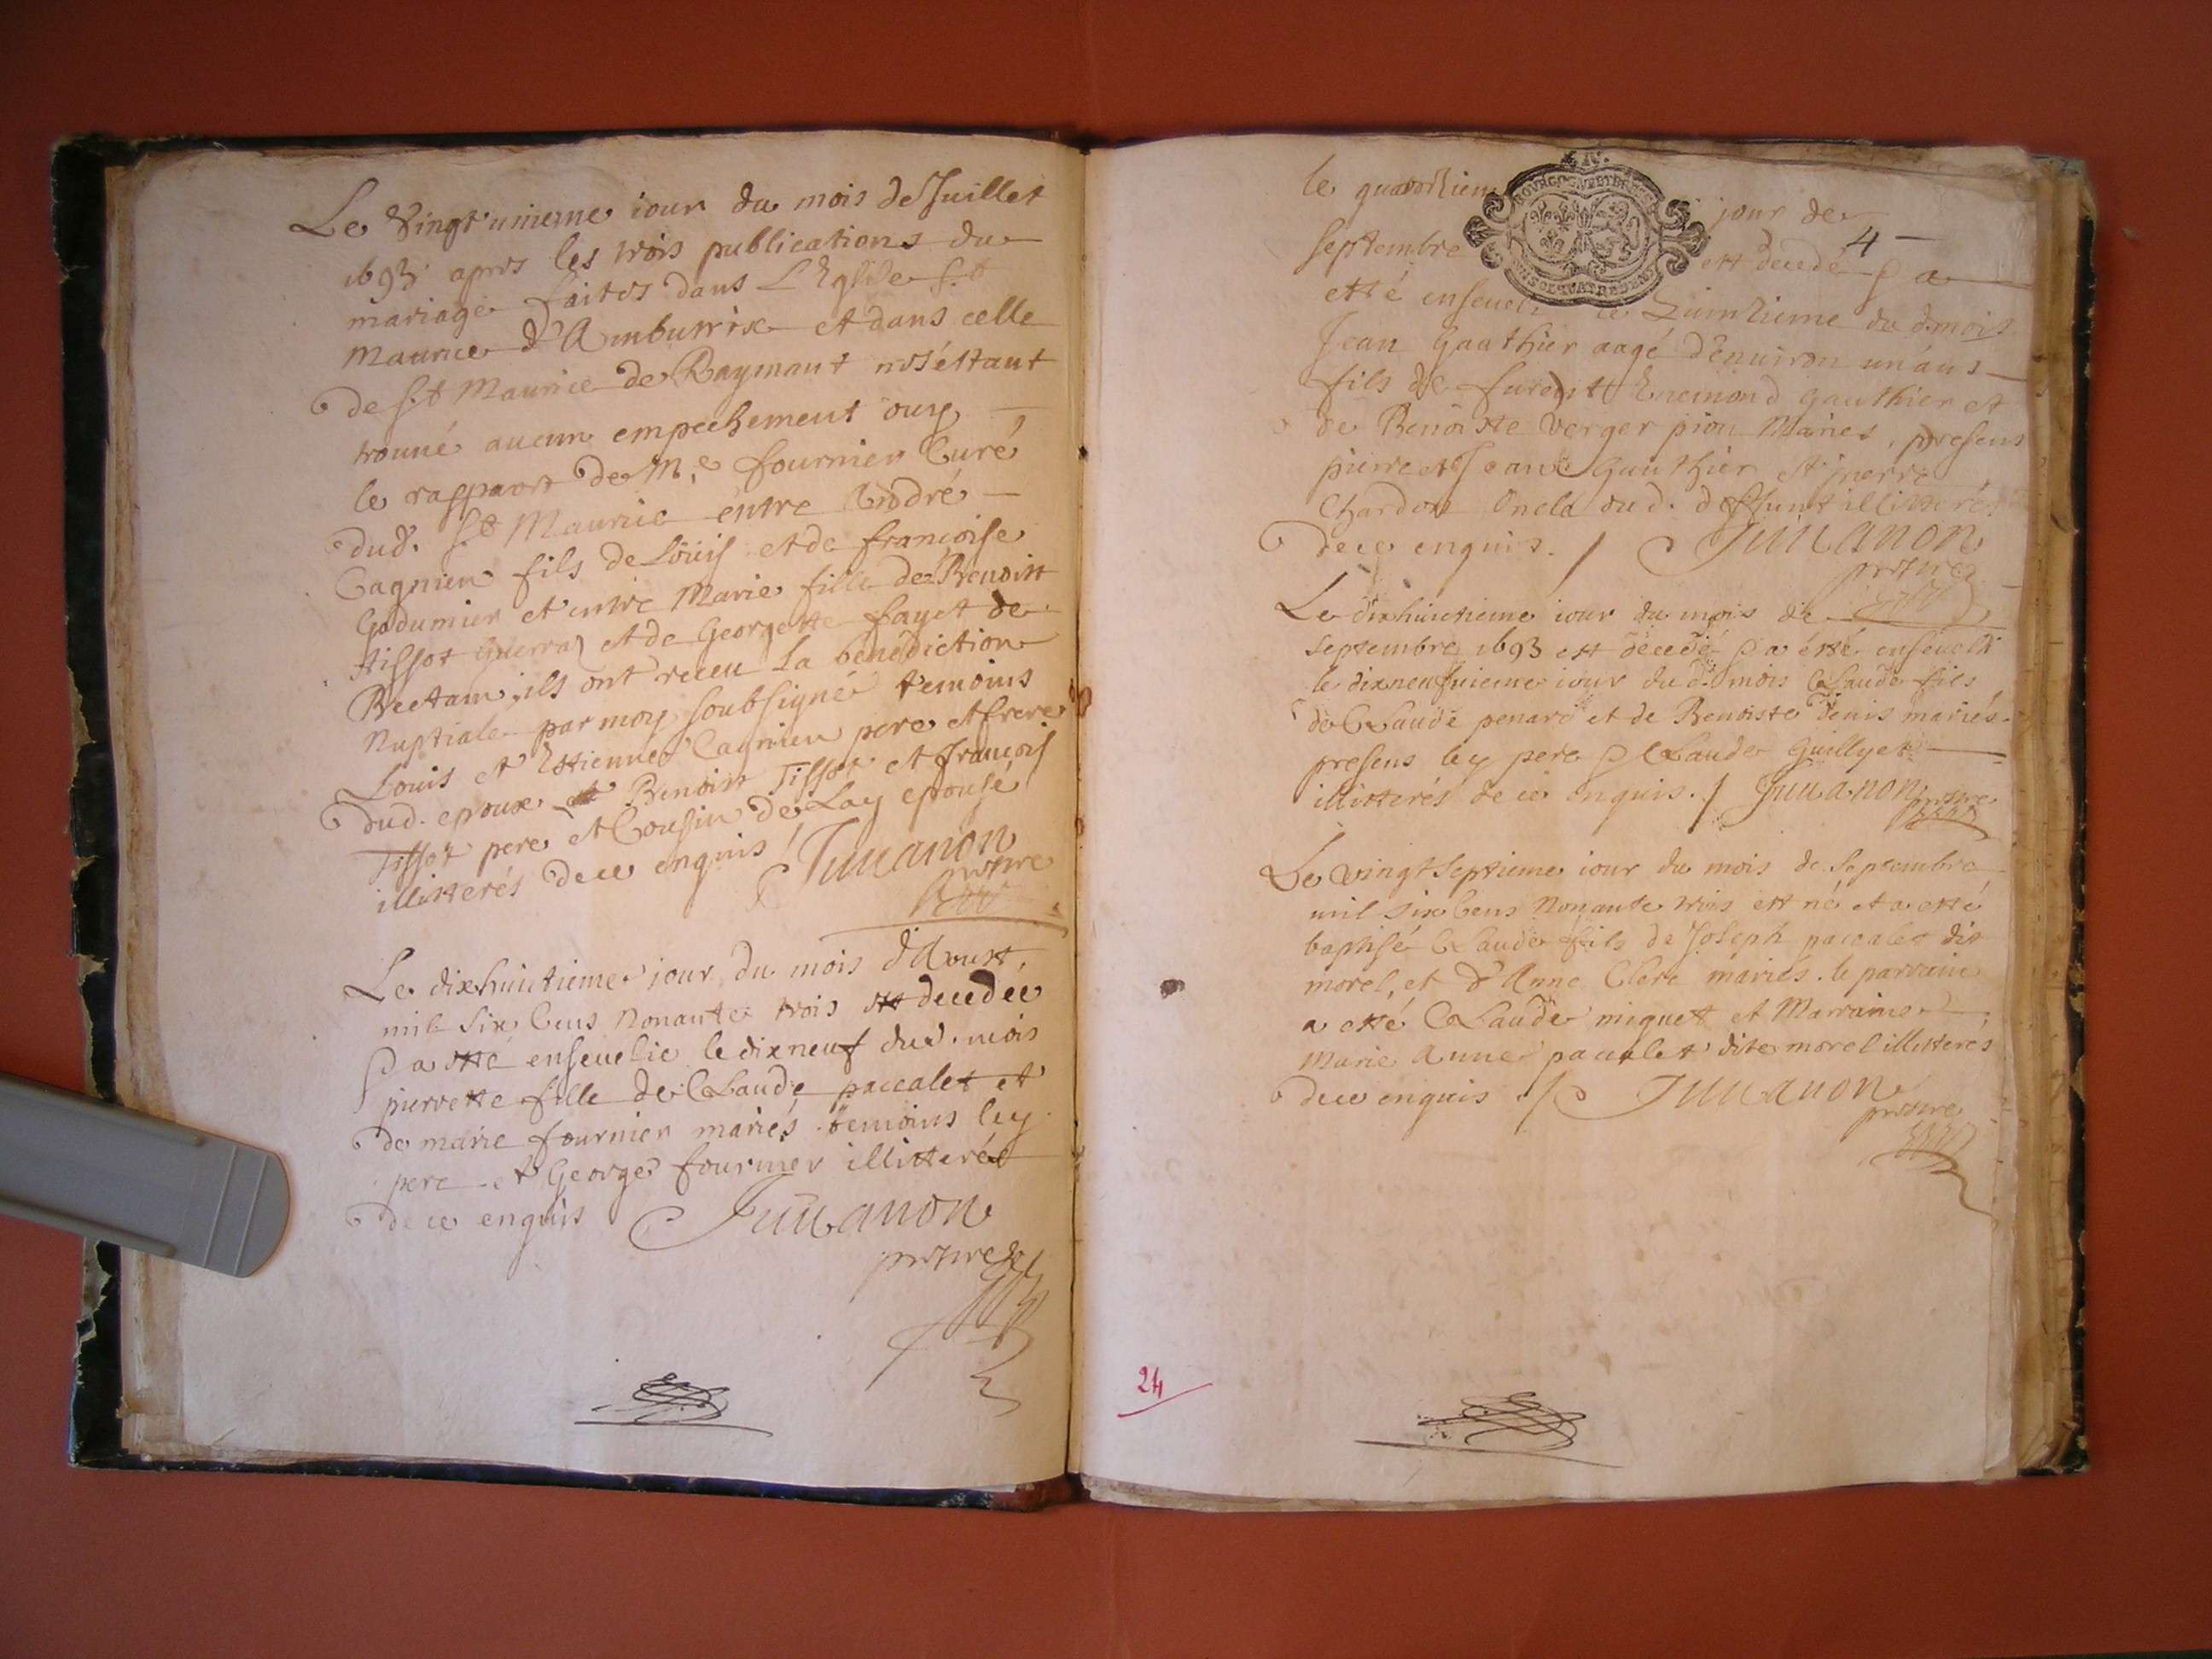 Le vingt unieme iour du mois de Juillet
1693 apres les trois publications du
mariage faites dans L'Eglise S.t
Maurice d'Ambutrix et dans celle
de S.t Maurice de Raymant n'estant
trouué aucun empechement ouy
le rapport de M.e fournier Curé
dud. St Maurice entre André
Cagnien fils de Loüis et de françoise
Godumier et entre Marie fille de Benoist
tissot et de Georgette fayet de
Bettam, ils ont receu la benediction
Nuptiale par moy soubsigné temoins
Louis et Estienne Cagnien pere et frere
dud. epoux et Benoist Tissot et françois
Tissot pere et Cousin de Lay epouse
illitterés de ce enquis Juuanon
prestre
Le dixhuictieme jour du mois d'Aoust,
mil six Cens Nonante trois est decedee
& a esté enseuelie le dixneuf dud. mois
pierrette fille de Claude paccalet et
de marie fournier mariés temoins ley
pere et George fournier illitterés
de ce enquis Juuanon
prestre
le quatorzieme jour de
septembre est decedé & a
4
esté enseueli le Quinzieme du d. mois
Jean Gauthier aagé d'enuiron un ans
fils de furent Enemond Gauthier et
de Benoiste Verger pion Mariés, presens
pierre et Jean Gauthier et pierre
Chardon Oncle dud. deffunt illitterés
de ce enquis. / Juuanon
prestre
Le dixhuictieme iour du mois de
septembre 1693 est decedé & a esté enseueli
le dixneufuieme iour du d. mois Claude fils
de Claude penard et de Benoiste Denis mariés
presens ley pere & Claude Guillyet
illitterés de ce enquis. / Juuanon
prestre
Le vingt septieme iour du mois de septembre
mil six Cens Nonante trois est né et a esté
baptisé Claude fils de Joseph paccalet dit
morel, et d'Anne Clerc mariés. le parrain
a esté Claude miguet et Marraine
Marie Anne paccalet dite morel illitterés
de ce enquis / Juuanon
prestre
24